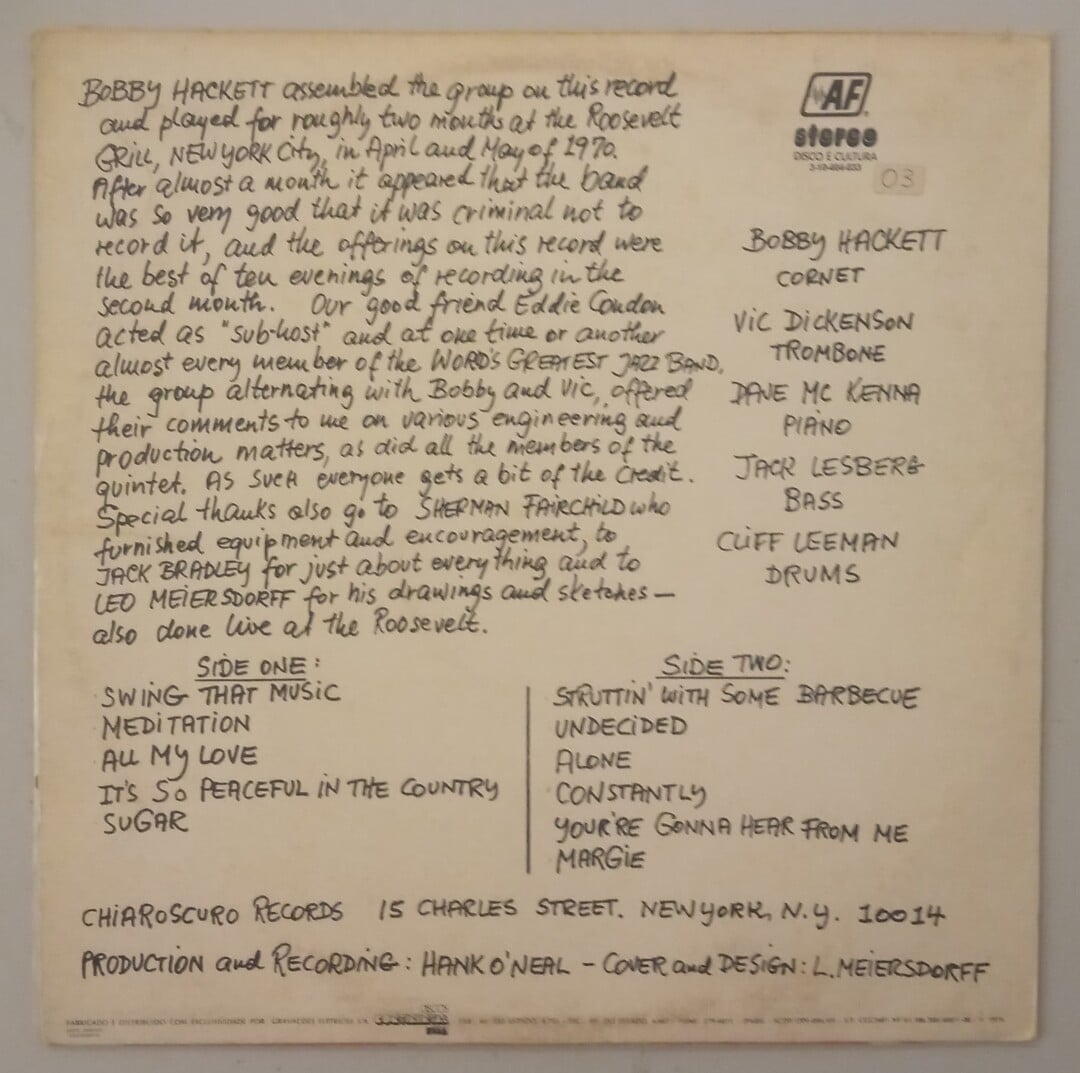 BOBBY HACKETT assembled the group on this record
and played for roughly two months at the Roosevelt
GRILL, NEW YORK City, in April and May of 1970.
After almost a month it appeared that the band
was so very good that it was criminal not to
record it, and the offerings on this record were
the best of ten evenings of recording in the
second month. Our good friend Eddie Condon
acted as "sub-host" and at one time or another
almost every member of the WORD'S GREATEST JAZZ BAND,
the group alternating with Bobby and Vic, offered
their comments to me on various engineering and
production matters, as did all the members of the
quintet. AS SUCH everyone gets a bit of the Credit.
Special thanks also go to SHERMAN FAIRCHILD who
furnished equipment and encouragement, to
JACK BRADLEY for just about everything and to
LEO MEIERSDORFF for his drawings and sketches —
also done live at the Roosevelt.
AF
stereo
DISCO E CULTURA
03
BOBBY HACKETT
CORNET
VIC DICKENSON
TROMBONE
DAVE MC KENNA
PIANO
JACK LESBERG
BASS
CLIFF LEEMAN
DRUMS
SIDE ONE:
SWING THAT MUSIC
MEDITATION
ALL MY LOVE
IT'S SO PEACEFUL IN THE COUNTRY
SUGAR
SIDE TWO:
STRUTTIN' WITH SOME BARBECUE
UNDECIDED
ALONE
CONSTANTLY
YOUR'RE GONNA HEAR FROM ME
MARGIE
CHIAROSCURO RECORDS 15 CHARLES STREET. NEW YORK, N.Y. 10014
PRODUCTION and RECORDING: HANK O'NEAL – COVER and DESIGN: L. MEIERSDORFF
FABRICADO E DISTRIBUIDO COM EXCLUSIVIDADE POR GRAVAÇÕES ELÉTRICAS S.A.